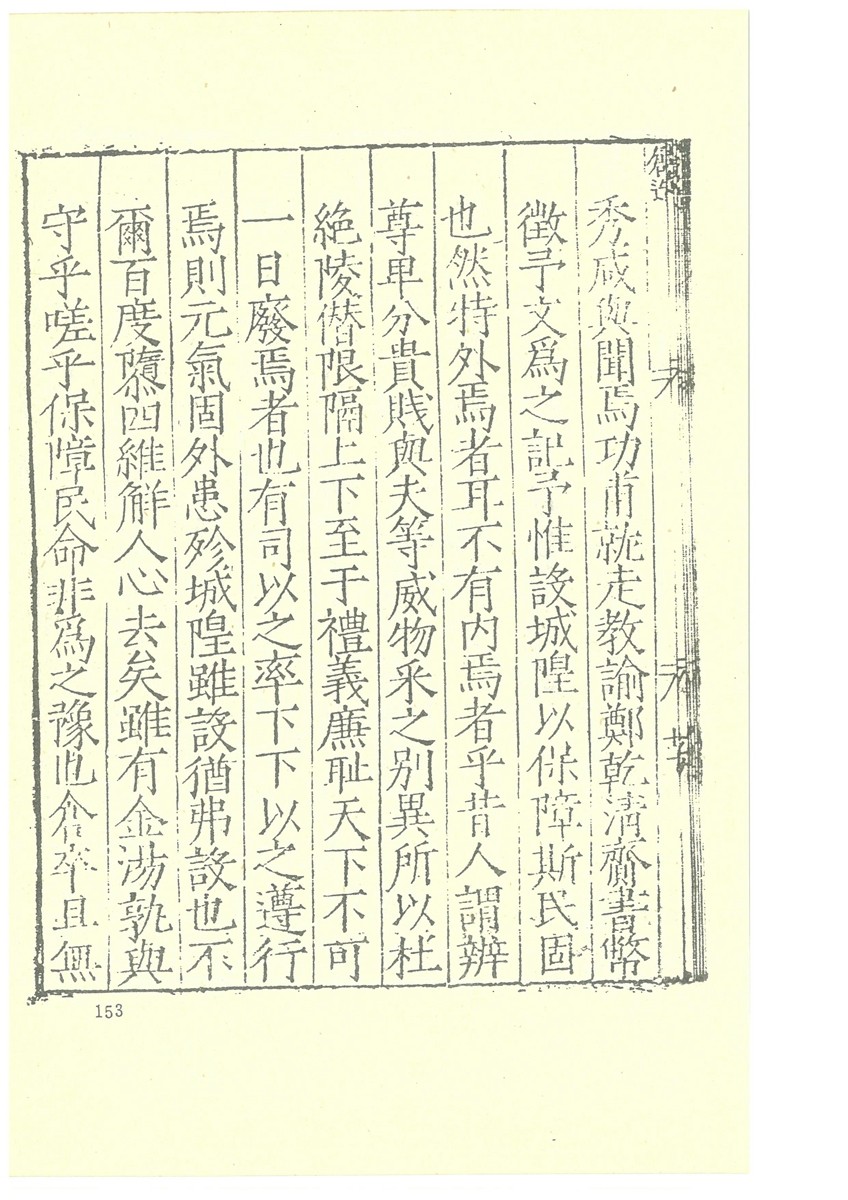 秀咸與聞焉功甫就走教諭鄭乾清齎書幣
徵予文爲之記予惟設城隍以保障斯民固
也然特外焉者耳不有内焉者乎昔人謂辨
尊卑分貴賎與夫等威物采之别異所以杜
絶陵僭限隔上下至于禮義廉耻天下不可
一日廢焉者也有司以之率下下以之遵行
焉則元氣固外患殄城隍雖設猶弗設也不
爾百度隳四維解人心去矣雖有金湯孰與
守乎嗟乎保障民命非爲之豫也倉卒且無
153